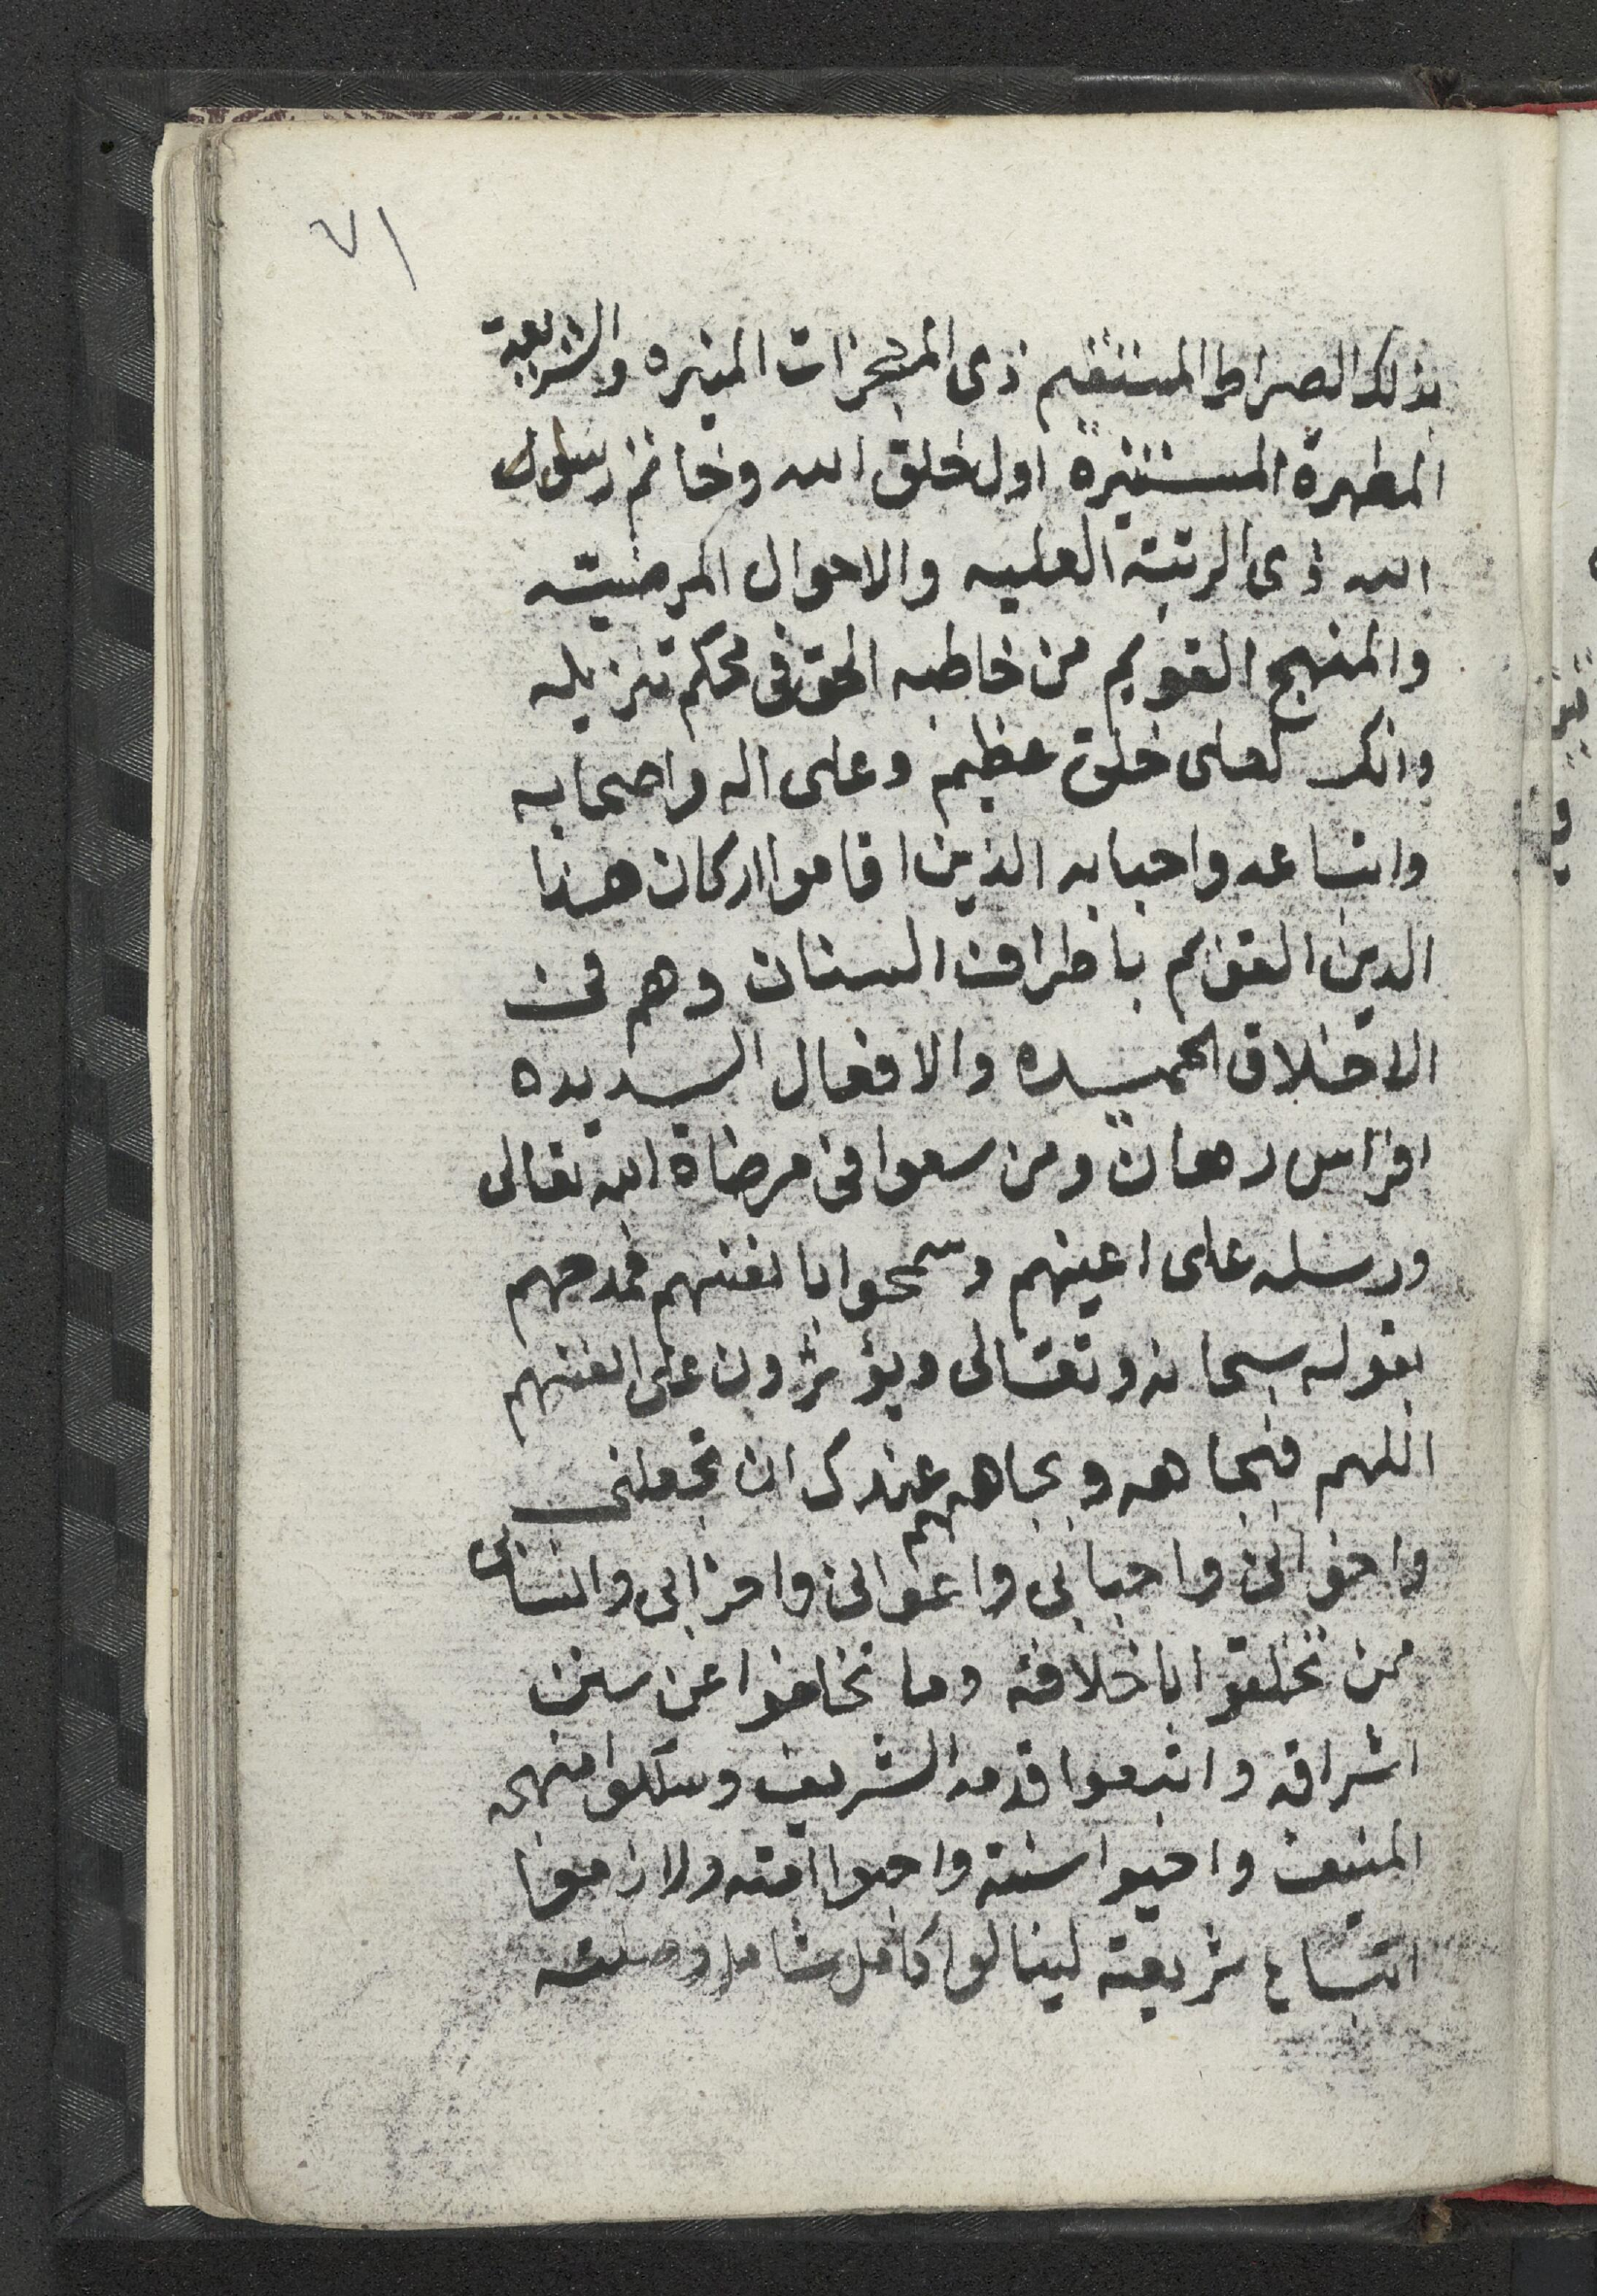 ٧١
بذلك الصراط المستقيم ذى المعجزات المنيره والشريعة
المطهرة المستنيرة اول خلق الله وخاتم رسول
الله ذى الرتبة العليه والاحوال المرضيته
والمنهج القويم من خاطبه الحق فى محكم تنزيله
وانك لعلى خلق عظيم وعلى اله واصحابه
واتباعه واحبابه الذين اقاموا اركان هذا
الدين القويم باطراف السنان وهم فى
الاخلاق الحميده والافعال السديده
افراس رهان ومن سعوا فى مرضاة الله تعالى
ورسله على اعينهم وسمحوا بانفسهم فمدحهم
بقوله سبحانه وتعالى ويؤثرون على انفسهم
اللهم فبجاهه وبجاههم عندك ان تجعلنى
واخوانى واحبابى واعوانى واحزابى وانسابى
ممن تخلقوا باخلاقه وما تخلفوا عن سنن
اشراقه واتبعوا قدمه الشريف وسلكوا منهجه
المنيف واحيوا سنته واحبوا امته ولازموا
اتباع شريعته لينالوا كامل شامل وصلته